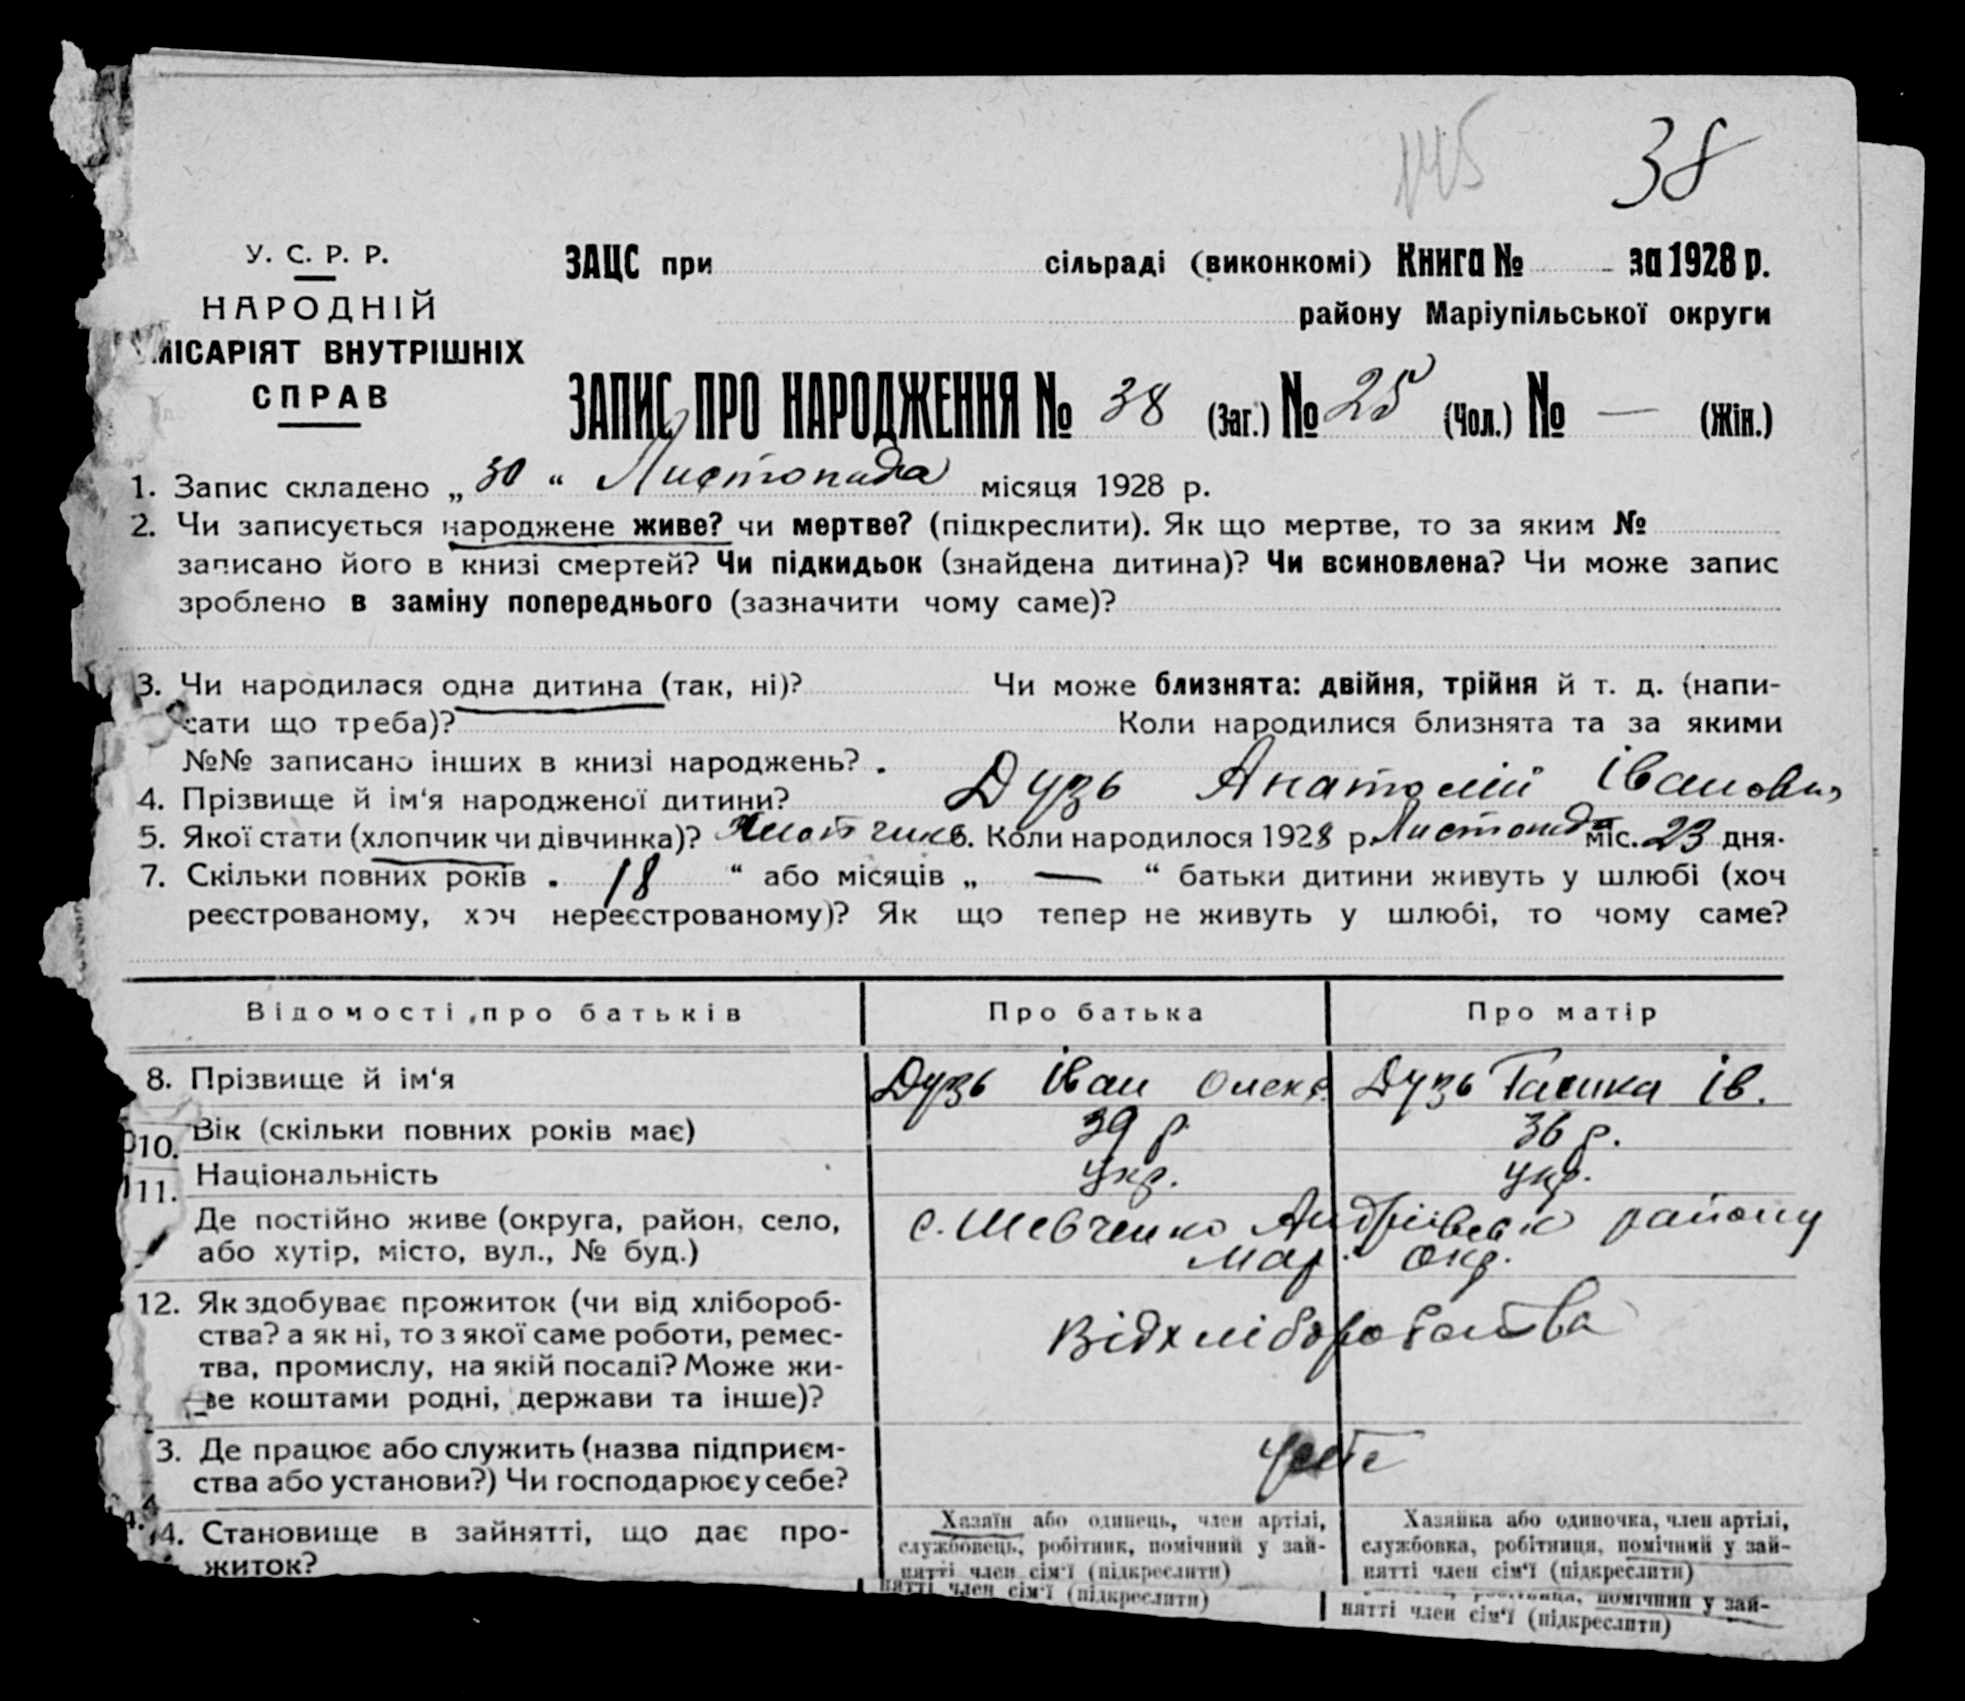 145 38
У. С. Р. Р.
НАРОДНІЙ
МІСАРІЯТ ВНУТРІШНІХ
СПРАВ
ЗАЦС при сільраді (виконкомі) Книга № за 1928 р.
району Маріупільської округи
ЗАПИС ПРО НАРОДЖЕННЯ № 38 (Заг.) № 25 (Чол.) № — (Жін.)
1. Запис складено „ 30 “ Листопада місяця 1928 р.
2. Чи записується народжене живе? чи мертве? (підкреслити). Як що мертве, то за яким №
записано його в книзі смертей? Чи підкидьок (знайдена дитина)? Чи всиновлена? Чи може запис
зроблено в заміну попереднього (зазначити чому саме)?
3. Чи народилася одна дитина (так, ні)? Чи може близнята: двійня, трійня й т. д. (напи-
сати що треба)? Коли народилися близнята та за якими
№№ записано інших в книзі народжень?
4. Прізвище й ім‘я народженої дитини? Дузь Анатолій Іванович
5. Якої стати (хлопчик чи дівчинка)? Хлопчик 6. Коли народилося 1928 р. Листопада міс. 23 дня.
7. Скільки повних років „ 18 “ або місяців „ — “ батьки дитини живуть у шлюбі (хоч
реєстрованому, хоч нереєстрованому)? Як що тепер не живуть у шлюбі, то чому саме?
Відомості про батьків Про батька Про матір
8. Прізвище й ім‘я Дузь Іван Олекс. Дузь Ганна Ів.
10. Вік (скільки повних років має) 39 р. 36 р.
11. Національність Укр. Укр.
Де постійно живе (округа, район, село, с. Шевченко Андріївськ району
або хутір, місто, вул., № буд.) Мар. Окр.
12. Як здобуває прожиток (чи від хлібороб-
ства? а як ні, то з якої саме роботи, ремес- Від хліборобства
тва, промислу, на якій посаді? Може жи-
ве коштами родні, держави та інше)?
3. Де працює або служить (назва підприєм-
ства або установи?) Чи господарює у себе? У себе
4. Становище в зайнятті, що дає про-
житок?
Хазяїн або одинець, член артілі,
службовець, робітник, помічний у зай-
нятті член сім‘ї (підкреслити)
Хазяйка або одиночка, член артілі,
службовка, робітниця, помічний у зай-
нятті член сім‘ї (підкреслити)
нятті член сім‘ї (підкреслити)
помічний у зай-
нятті член сім‘ї (підкреслити)